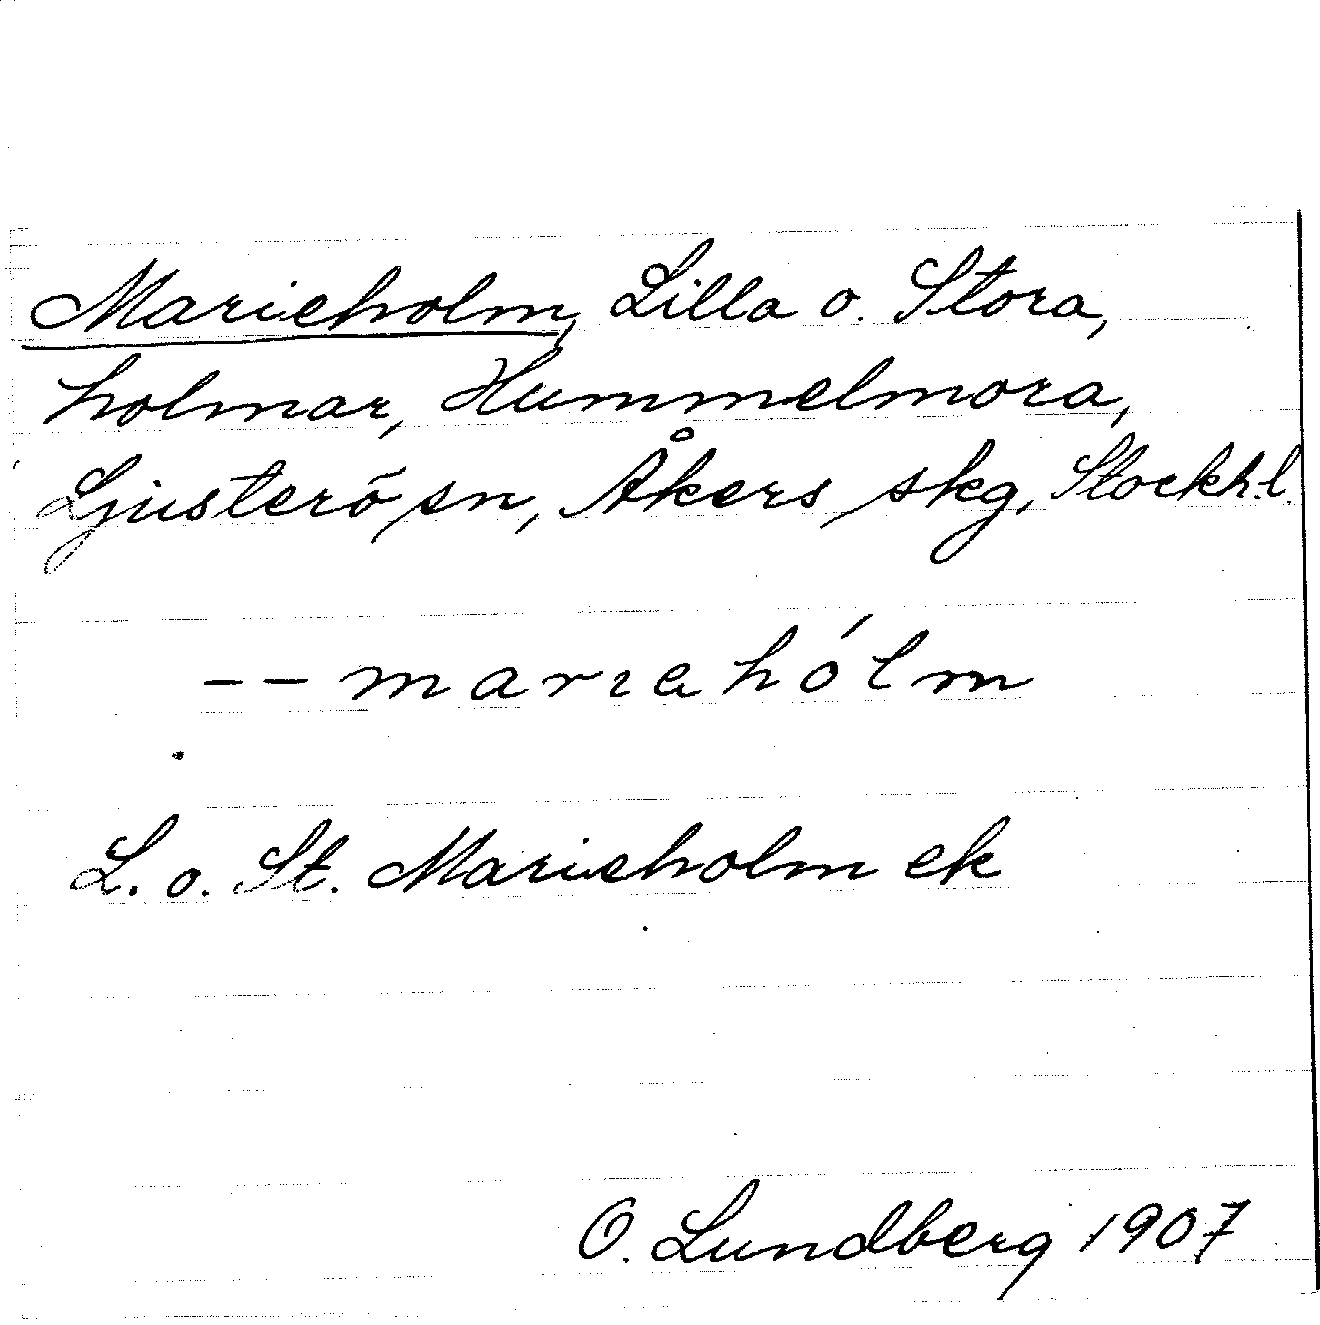 Marieholm, Lilla o. Stora,
holmar, Hummelmora,
Ljusterö sn, Åkers skg, Stockh.l.
-- marıɐhólm
L. o. St. Marieholm ek
O. Lundberg 1907